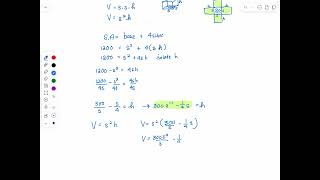 V = s·s·h
V = s²h
S.A = base + 4 sides
1200 = s² + 4(sh)
1200 = s² + 4sh isolate h
1200 - s² = 4sh
1200/4s - s²/4s = 4sh/4s
300/s - s/4 = h → 300s⁻¹ - 1/4 s = h
V = s²h V = s²(300/s - 1/4 s)
V = 300s²/s - 1/4